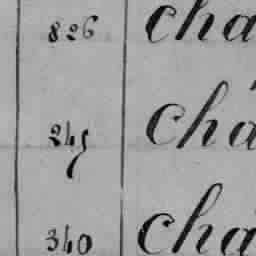 826 cha
245 châ
340 châ